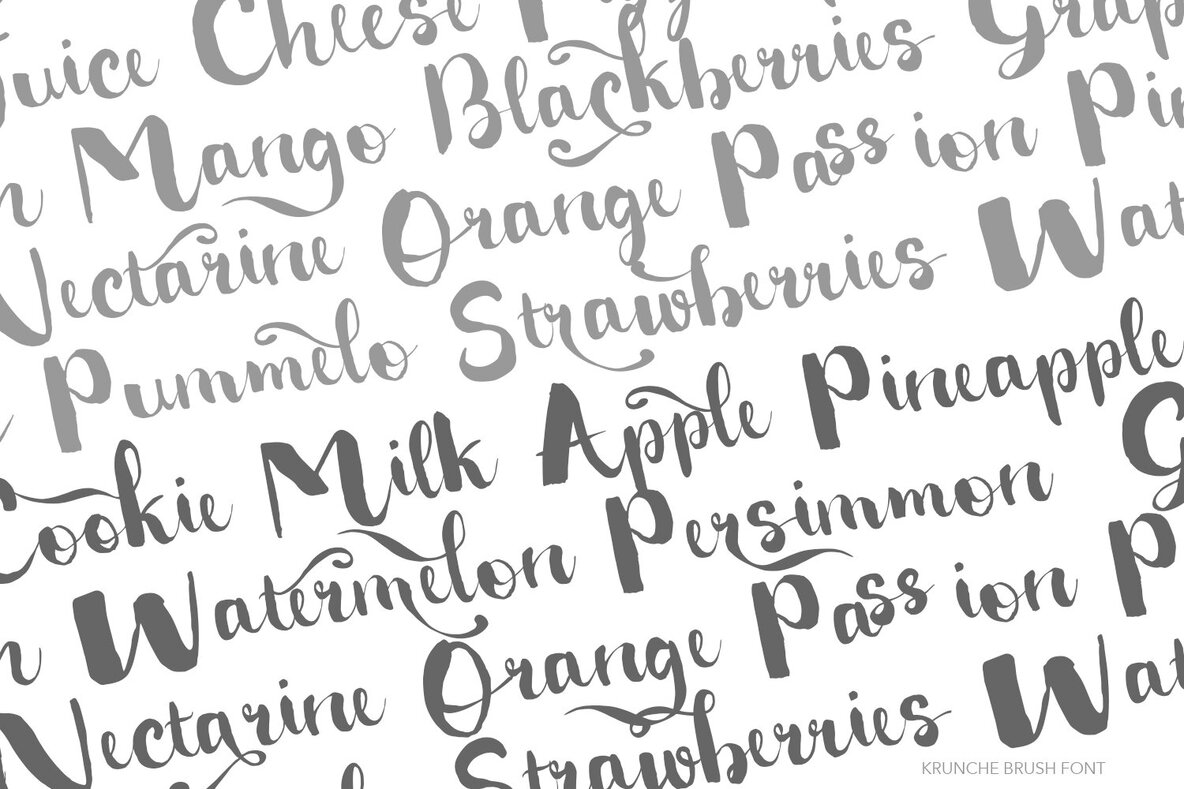 Juice Cheese
Mango Blackberries Grap
Nectarine Orange Pass ion Pin
Pummelo Strawberries Wat
Cookie Milk Apple Pineapple
n Watermelon Persimmon G
Nectarine Orange Pass ion P
Strawberries Wat
KRUNCHE BRUSH FONT